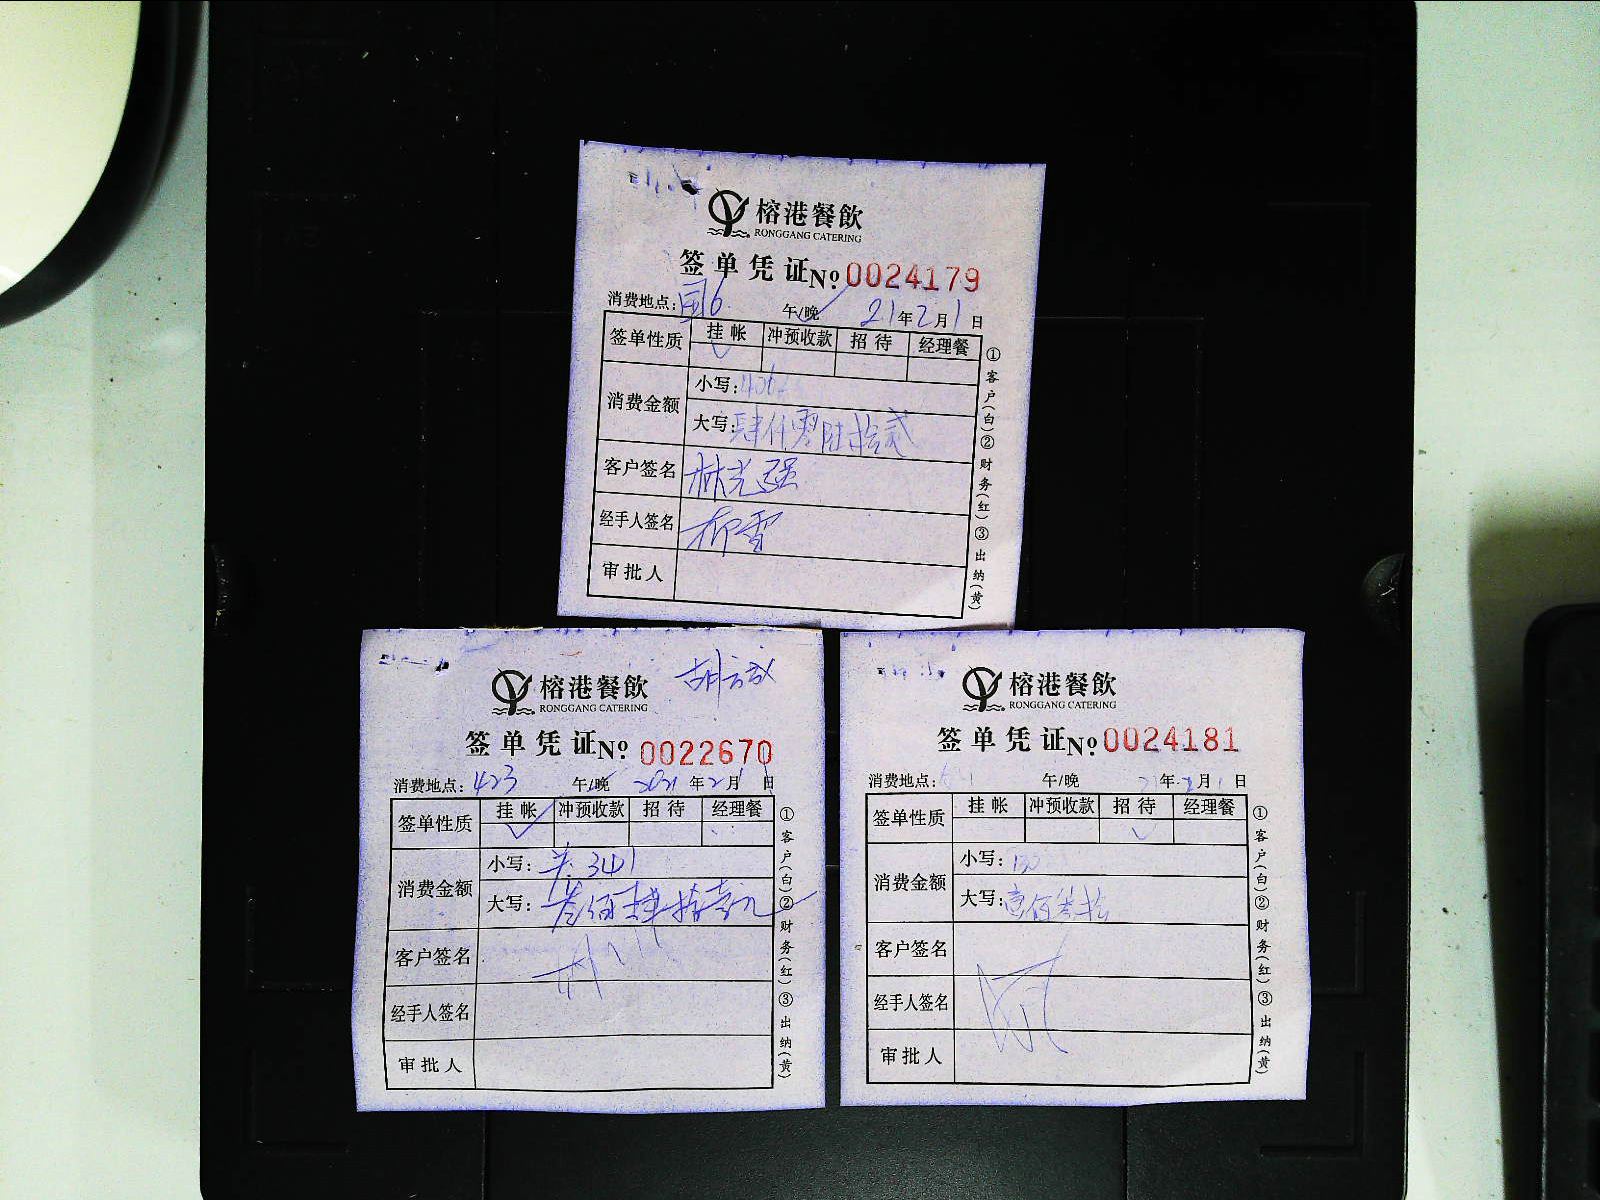 榕港餐飲
RONGGANG CATERING
签单凭证 No 0024179
消费地点: 国6 午/晚 21年2月1日
签单性质 挂帐 冲预收款 招待 经理餐
消费金额 小写: 4062
大写: 肆仟零陆拾贰
客户签名 林光强
经手人签名 柳雪
审批人
①客户(白)②财务(红)③出纳(黄)
胡云成
榕港餐飲
RONGGANG CATERING
签单凭证 No 0022670
消费地点: 423 午/晚 2021年2月1日
签单性质 挂帐 冲预收款 招待 经理餐
消费金额 小写: 341
大写: 叁佰肆拾壹元
客户签名
经手人签名
审批人
①客户(白)②财务(红)③出纳(黄)
榕港餐飲
RONGGANG CATERING
签单凭证 No 0024181
消费地点: 午/晚 21年2月1日
签单性质 挂帐 冲预收款 招待 经理餐
消费金额 小写: 130
大写: 壹佰叁拾
客户签名
经手人签名
审批人
①客户(白)②财务(红)③出纳(黄)